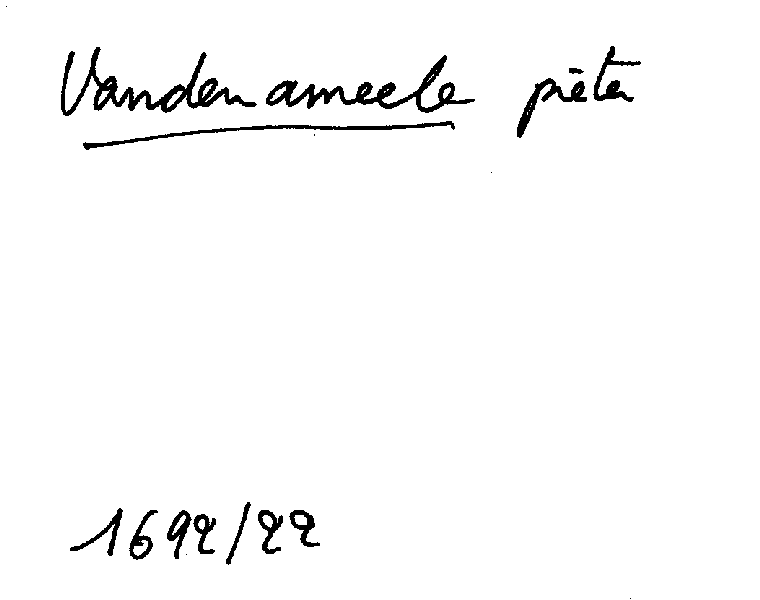 Vandenameele pieter
1692/22